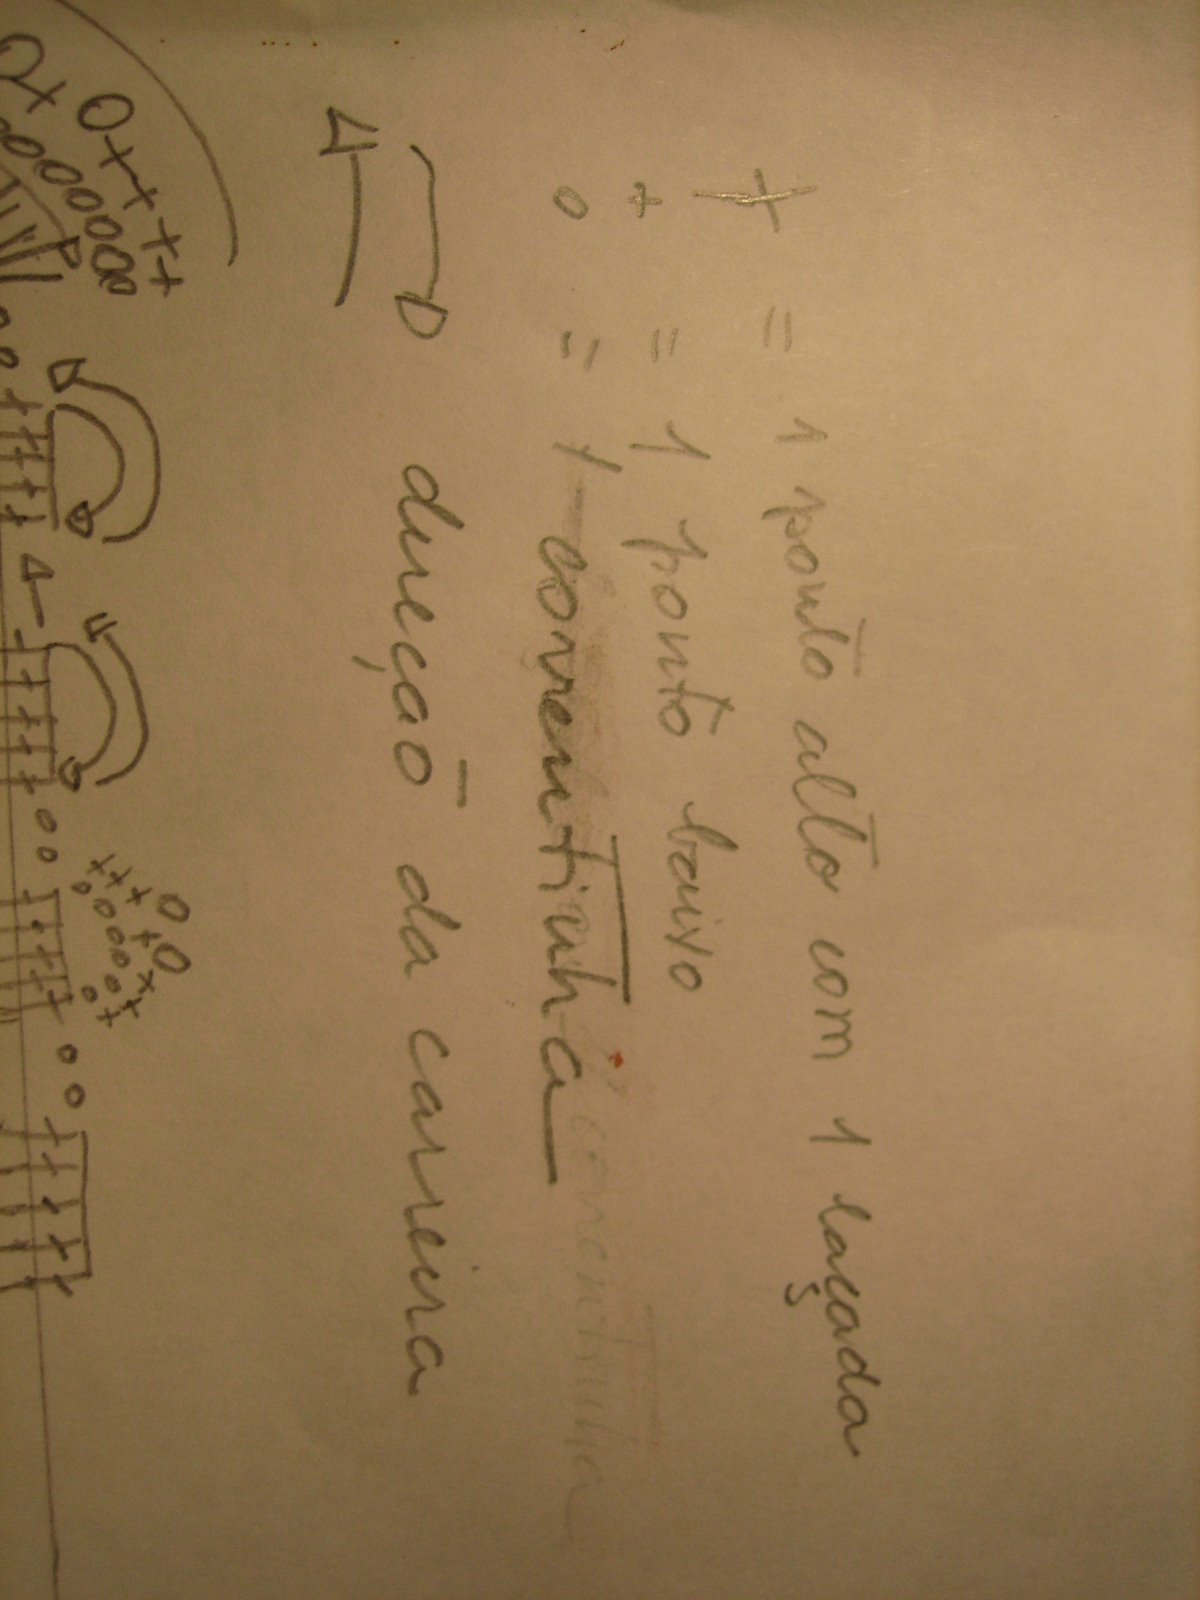 † = 1 ponto alto com 1 laçada
+ = 1 ponto baixo
o = 1 correntinha
direção da carreira